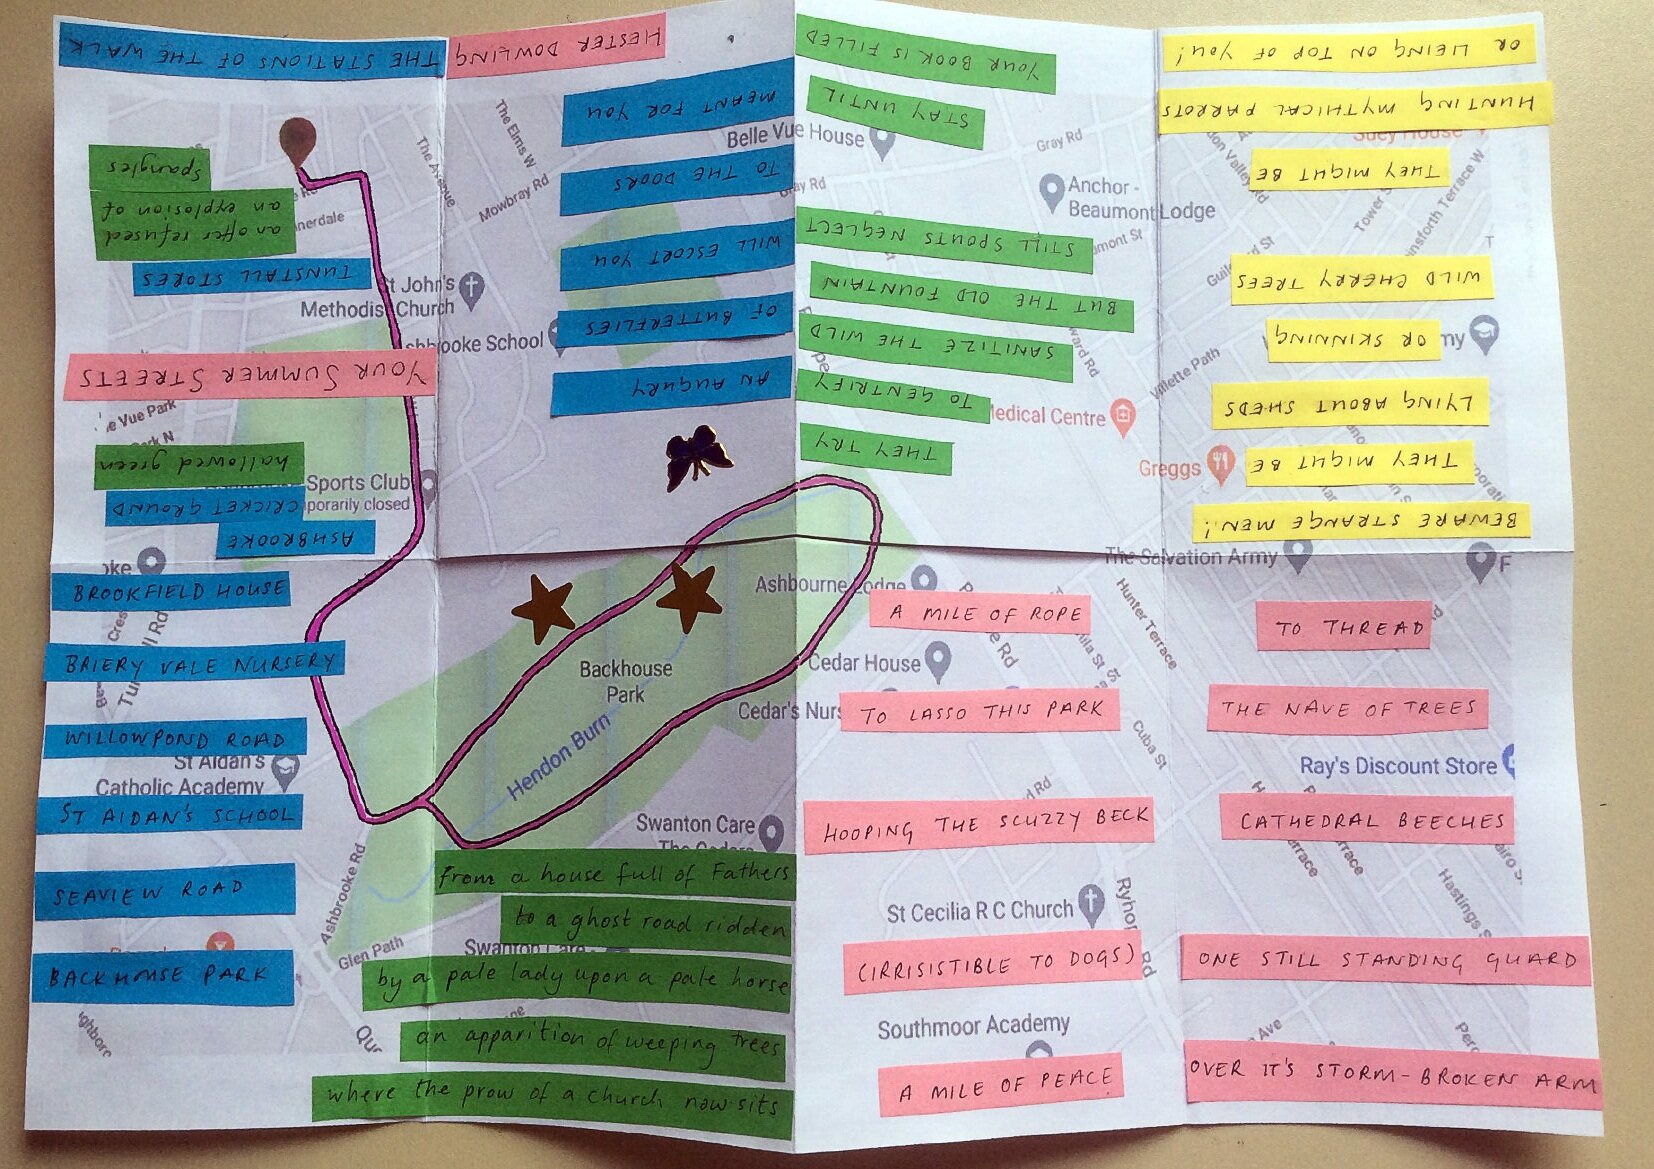 BEWARE STRANGE MEN!
THEY MIGHT BE
LYING ABOUT SHEDS
OR SKINNING
WILD CHERRY TREES
THEY MIGHT BE
HUNTING MYTHICAL PARROTS
OR LIEING ON TOP OF YOU!
THEY TRY
TO GENTRIFY
SANITIZE THE WILD
BUT THE OLD FOUNTAIN
STILL SPOUTS NEGLECT
STAY UNTIL
YOUR BOOK IS FILLED
AN AUGURY
OF BUTTERFLIES
WILL ESCORT YOU
TO THE DOORS
MEANT FOR YOU
HESTER DOWLING
ASHBROOKE
CRICKET GROUND
hallowed green
YOUR SUMMER STREETS
TUNSTALL STORES
an offer refused
an explosion of
spangles
THE STATIONS OF THE WALK
BROOKFIELD HOUSE
BRIERY VALE NURSERY
WILLOWPOND ROAD
ST AIDAN'S SCHOOL
SEAVIEW ROAD
BACKHOUSE PARK
from a house full of Fathers
to a ghost road ridden
by a pale lady upon a pale horse
an apparition of weeping trees
where the prow of a church now sits
A MILE OF ROPE
TO LASSO THIS PARK
HOOPING THE SCUZZY BECK
(IRRISISTIBLE TO DOGS)
A MILE OF PEACE
TO THREAD
THE NAVE OF TREES
CATHEDRAL BEECHES
ONE STILL STANDING GUARD
OVER IT'S STORM-BROKEN ARM
The Elms W
The Avenue
Mowbray Rd
Belle Vue House
Gray Rd
Gray Rd
Anchor -
Beaumont Lodge
St John's
Methodist Church
Ashbrooke School
Vue Park
Park N
Sports Club
Temporarily closed
Villette Path
Medical Centre
Greggs
The Salvation Army
Hunter Terrace
Ashbourne Lodge
Cedar House
Cedar's
Backhouse
Park
Hendon Burn
Cuba St
Ray's Discount Store
St Aidan's
Catholic Academy
Swanton Care
The Cedars
Ashbrooke Rd
Glen Path
Swanton Care
St Cecilia R C Church
Hastings S
Southmoor Academy